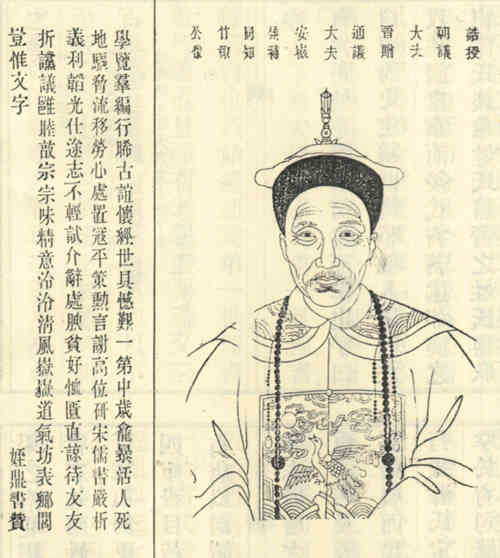 誥授
朝議
大夫
晉贈
通議
大夫
安徽
候補
同知
竹卿
公像
學覽羣編行晞古誼懷經世具憾艱一第中歲龕㬥活人死
地驅脅流移勞心處置寇平策勳言謝高位硏宋儒書嚴析
義利韜光仕途志不輕試介辭處腴貧好恤匱直諒待友友
折讒議雝睦宗宗味精意泠泠清風嶽嶽道氣坊表鄉閭
豈惟文字
姪鼎書贊